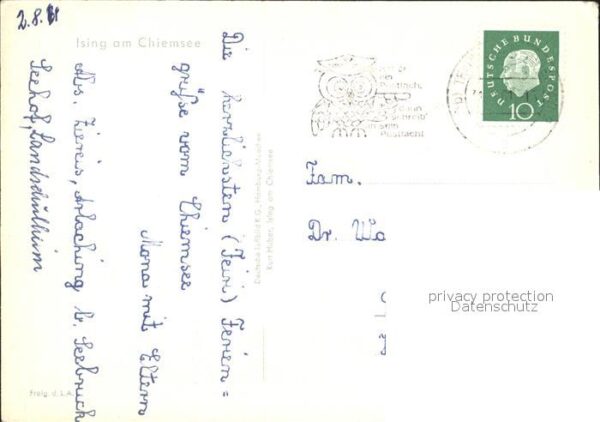 2.8.61
Ising am Chiemsee
Die herzlichsten (Feri) Ferien=
grüße vom Chiemsee
Mona mit Eltern
Abs. Ziereis, Arlaching b. Seebruck
Seehof, Landschulheim
Freig. d. L.A.
Deutsche Luftbild K.G., Hamburg-München
Kurt Huber, Ising am Chiemsee
Postfach,
sein
Postfach
DEUTSCHE BUNDESPOST
10
Fam.
Dr. Wa
privacy protection
Datenschutz